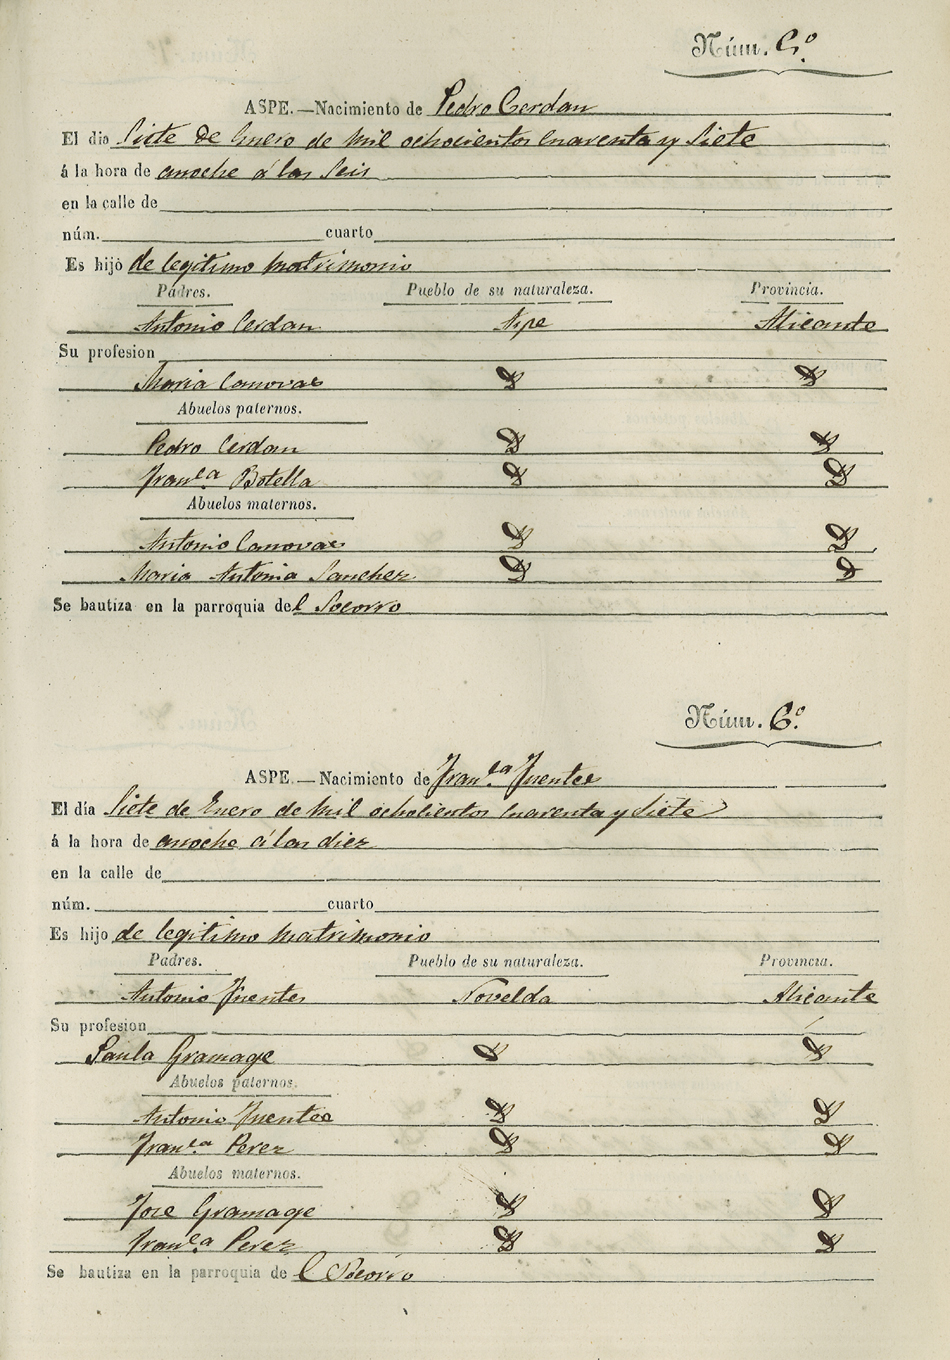 Núm.
ASPE.—Nacimiento de Pedro Cerdan
El dia Siete de Enero de mil ochocientos cuarenta y Siete
á la hora de anoche á las Seis
en la calle de
núm. cuarto
Es hijo de legitimo matrimonio
Padres. Pueblo de su naturaleza. Provincia.
Antonio Cerdan Aspe Alicante
Su profesion
Maria Canovas
Abuelos paternos.
Pedro Cerdan
Franca Botella
Abuelos maternos.
Antonio Canovas
Maria Antonia Sanchez
Se bautiza en la parroquia del Socorro
Núm. 6º.
ASPE.—Nacimiento de Franca Fuentes
El día Siete de Enero de mil ochocientos cuarenta y Siete
á la hora de anoche á las diez
en la calle de
núm. cuarto
Es hijo de legitimo matrimonio
Padres. Pueblo de su naturaleza. Provincia.
Antonio Fuentes Novelda Alicante
Su profesion
Paula Gramage
Abuelos paternos.
Antonio Fuentes
Franca Perez
Abuelos maternos.
Jose Gramage
Franca Perez
Se bautiza en la parroquia de l Socorro